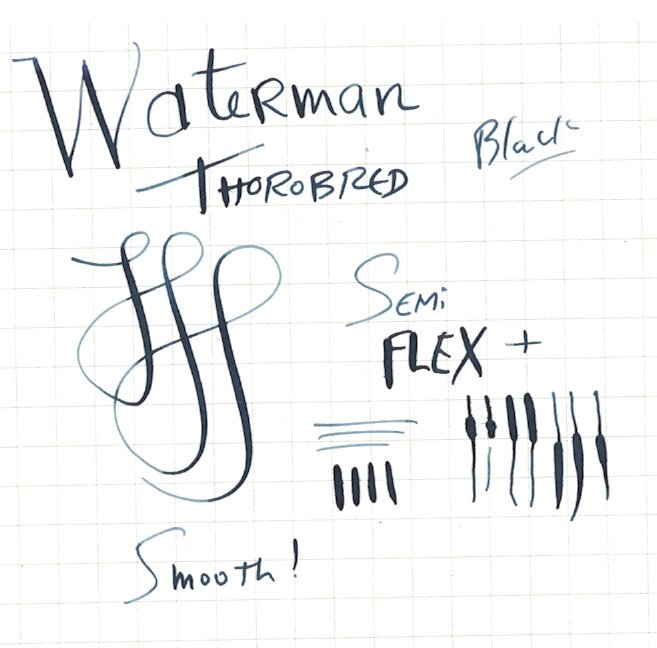 Waterman
Black
THOROBRED
SEMi
FLEX +
Smooth!